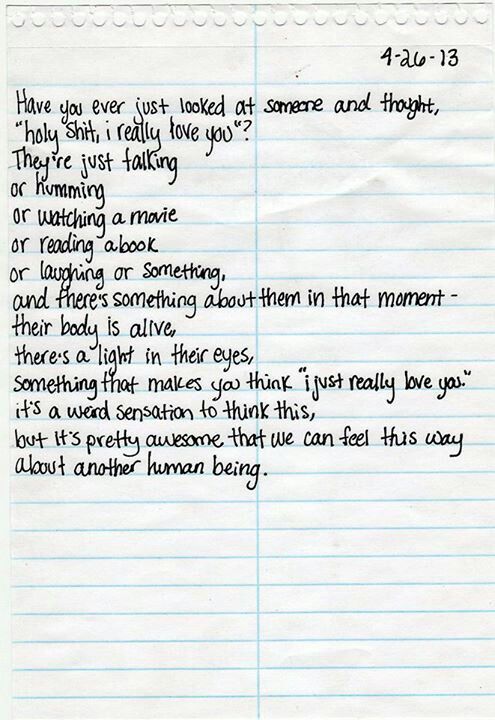 4-26-13
Have you ever just looked at someone and thought,
"holy shit, i really love you"?
They're just talking
or humming
or watching a movie
or reading a book
or laughing or something,
and there's something about them in that moment -
their body is alive,
there's a light in their eyes,
something that makes you think "i just really love you."
it's a weird sensation to think this,
but it's pretty awesome that we can feel this way
about another human being.